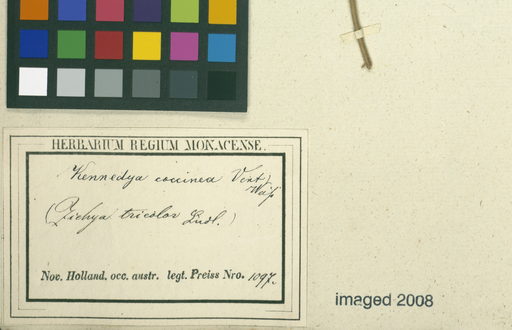 HERBARIUM REGIUM MONACENSE.
Kennedya coccinea Vent)
Walp
(Zichya tricolor Lindl.)
Nov. Holland. occ. austr. legt. Preiss Nro. 1097.
imaged 2008